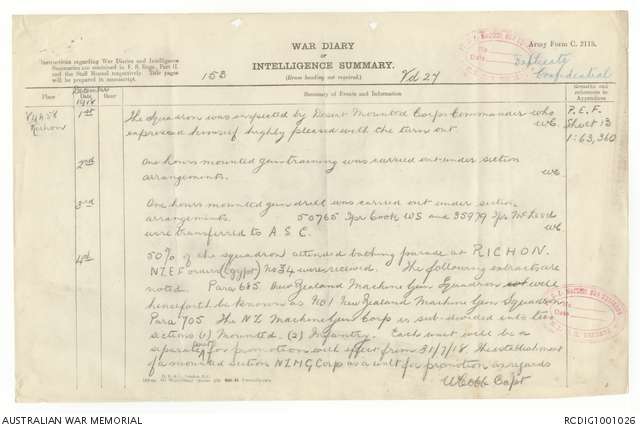 WAR DIARY
OR
INTELLIGENCE SUMMARY.
(Erase heading not required.)
Army Form C. 2118.
Instructions regarding War Diaries and Intelligence
Summaries are contained in F. S. Regs., Part II.
and the Staff Manual respectively. Title pages
will be prepared in manuscript.
153
Vol 27
Duplicate
Confidential
Place
Date
Hour
Summary of Events and Information
Remarks and
references to
Appendices
1918
Richon
1st
The Squadron was inspected by Desert Mounted Corps Commander who
expressed himself highly pleased with the turn out.
P.E.F.
Sheet 13
1:63,360
2nd
One hours mounted gun training was carried out under section
arrangements.
3rd
One hours mounted gun drill was carried out under section
arrangements. 50765 Tpr Cook WS and 35979 Tpr
were transferred to A S C.
4th
50% of the squadron attended bathing parade at RICHON.
N.Z.E.F orders (Egypt) No 34 were received. The following extracts are
noted. Para 685 New Zealand Machine Gun Squadron will
henceforth be known as No 1 New Zealand Machine Gun Squadron
Para 705. The NZ Machine Gun Corps is sub-divided into two
sections (1) Mounted. (2) Infantry. Each unit will be a
separate unit for promotion with effect from 31/7/18. The establishment
of a mounted section N.Z.M.G Corps as a unit for promotion as regards
Capt
AUSTRALIAN WAR MEMORIAL
RCDIG1001026